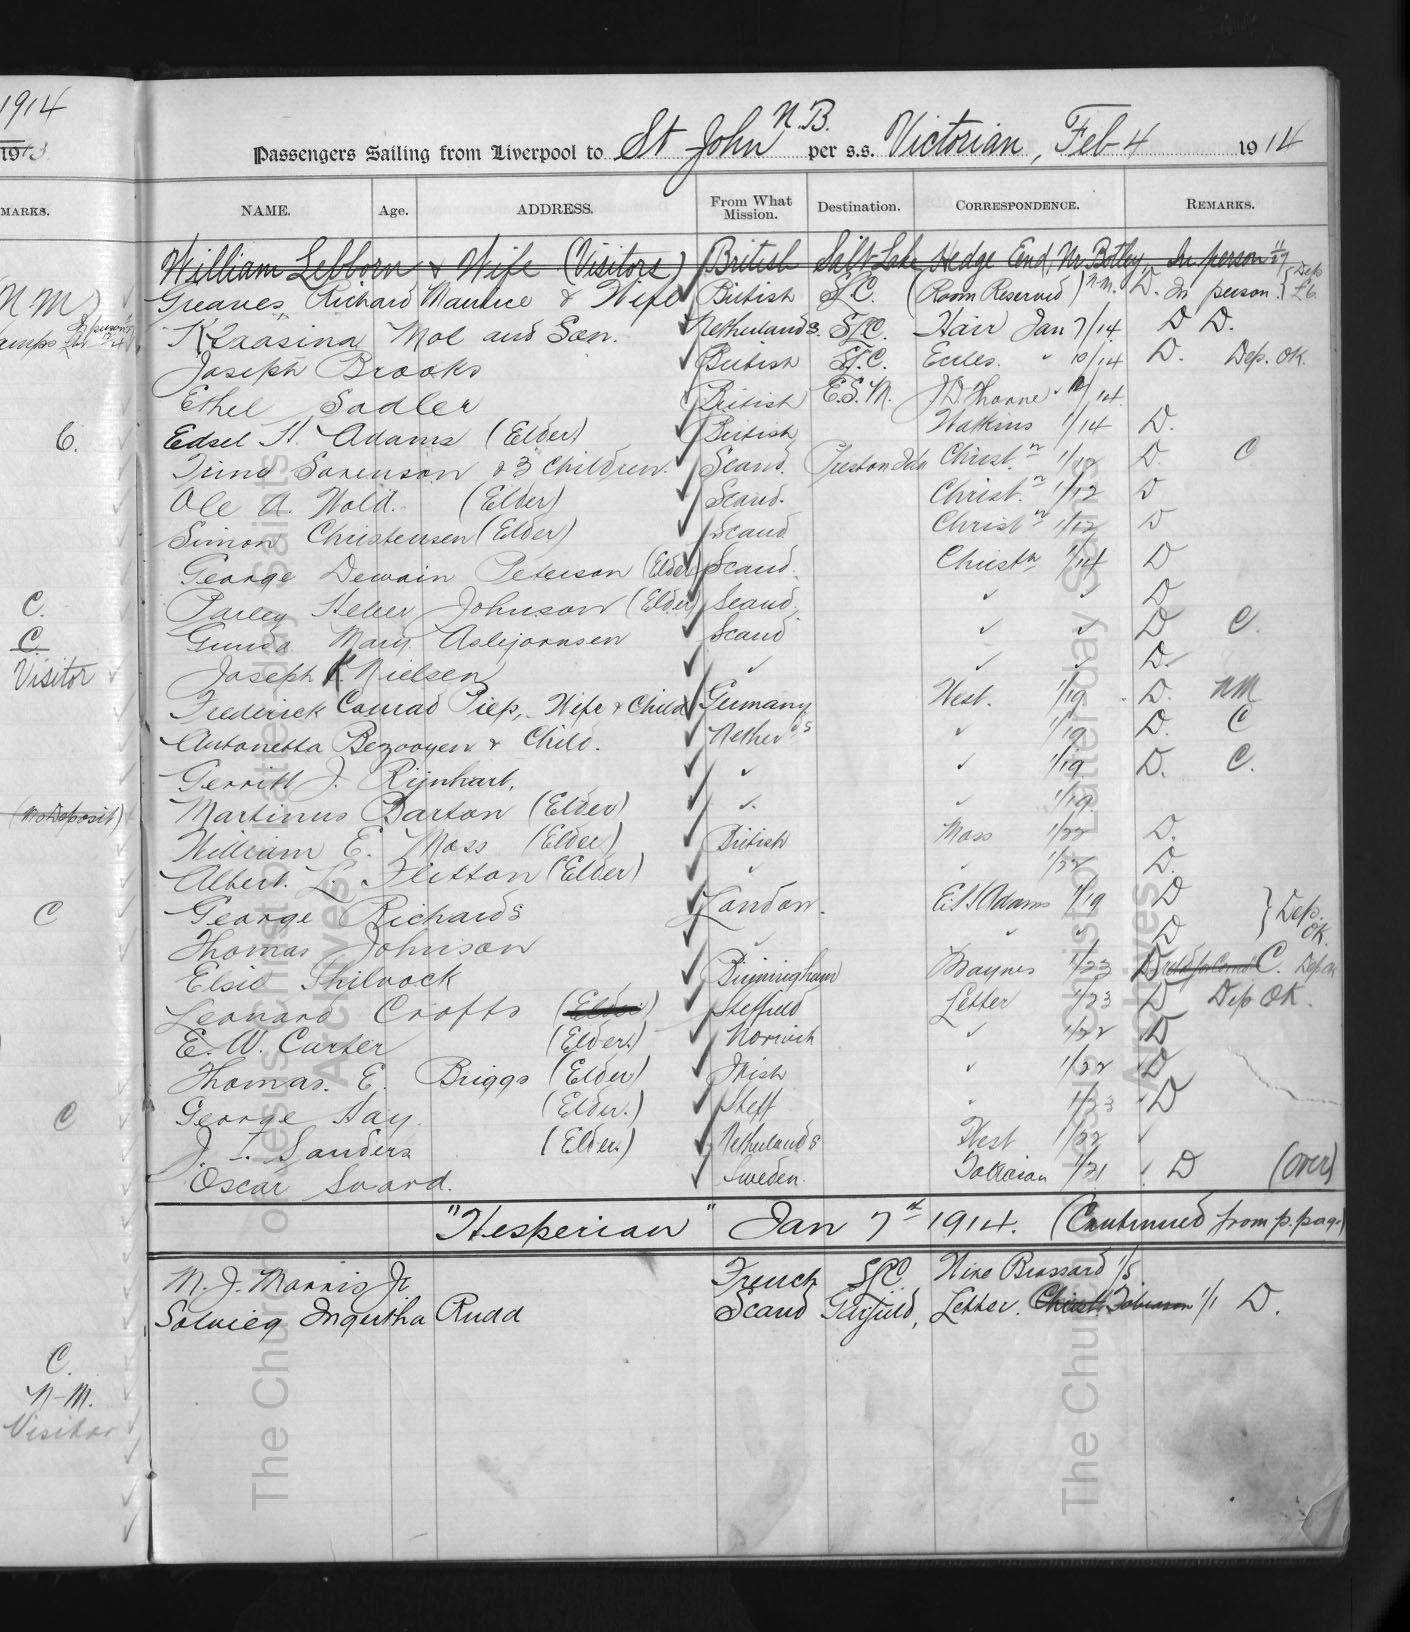 1914
1913
MARKS.
N M)
C.
C.
C.
Visitor
(No Deposit)
C
C
C.
N-M.
Visitor
Passengers Sailing from Liverpool to St John N.B. per s.s. Victorian, Feb 4 1914
NAME. Age. ADDRESS. From What Mission. Destination. CORRESPONDENCE. REMARKS.
William Lebborn & Wife (Visitors) British Salt Lake Hedge End, Nr Botley In person
Greaves, Richard Maurice & Wife British SLC. (Room Reserved) N-M. D. In person. } Dep £6
Klaasina Mol and Son. Netherlands. SLC. Hair Jan 7/14. D D.
Joseph Brooks British SLC. Eccles. " 10/14 D. Dep. OK.
Ethel Sadler British E.S.M. JD Thorne " /14.
Edsel H. Adams (Elder) British Watkins 1/14 D.
Trina Sorenson & 3 Children. Scand. Preston Ida Christ.n 1/12 D. C
Ole A. Wold. (Elder) Scand. Christ.n 1/12 D
Simon Christensen (Elder) Scand Christn 1/12 D
George Dewain Peterson (Elder) Scand. Christn 1/14 D
Parley Heber Johnson (Elder) Scand. " " D
Gunda Mary Asbjornsen Scand " " D C.
Joseph K. Nielsen " " " D.
Frederick Conrad Piep, Wife & Child Germany West. 1/19 D. NM
Antonetta Bezooyen & Child. Nether'ds " 1/19 D. C
Gerritt J. Rijnhart. " " 1/19 D. C.
Martinus Barton (Elder) " " 1/19
William E. Moss (Elder) British Moss 1/22 D.
Albert L. Flitton (Elder) " " 1/22 D.
George Richards London. E.H. Adams 1/19 D } Dep. OK.
Thomas Johnson " " " D
Elsie Philcock Birmingham Baynes 1/23 D C. Dep OK
Leonard Crofts (Elder) Sheffield Letter 1/23 D Dep OK.
E. W. Carter (Elder.) Norwich " 1/22 D
Thomas. E. Briggs (Elder) Irish " 1/22 D
George Hay. (Elder.) Sheff " 1/23 D
J. L. Sanders (Elder.) Netherlands West 1/22
Oscar Svard. Sweden. 1/21 D (over)
"Hesperian" Jan 7th 1914. (Continued from p. page)
M. J. Morris Jr. French SLC Brossard 1/5
Solvieg Ingertha Rudd Scand Garfield, Letter. Christ. Tobiason 1/1 D.
The Church of Jesus Christ of Latter-day Saints
Archives
The Church of Jesus Christ of Latter-day Saints
Archives